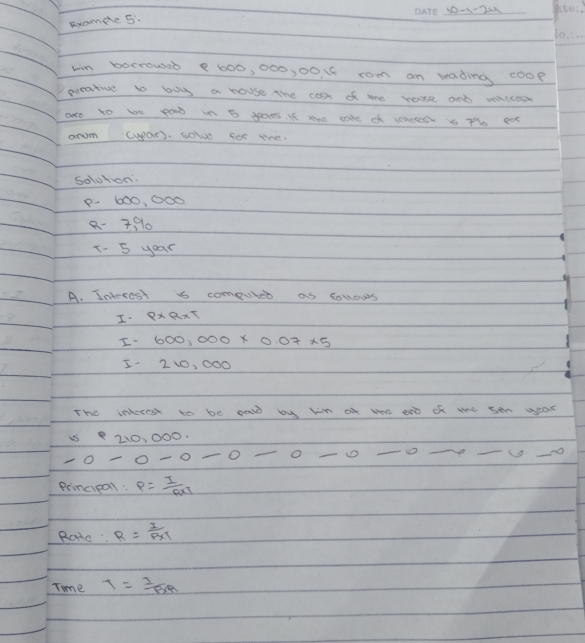 DATE 10-1-24
Example 5:
Lin borrowed ₱ 600,000,00,if rom an leading coop
perative to buy a house the cost of the house and interest
are to be paid in 5 years if the rate of interest is 7% per
anum (year). solve for the.
Solution:
P- 600,000
R- 7%
T- 5 year
A. Interest is computed as follows
I- PxRxT
I- 600,000 x 0.07 x5
I- 210,000
The interest to be paid by Lin at the end of the 5th year
is ₱ 210,000.
Principal: P = I/RxT
Rate: R = I/PxT
Time T = I/PxR